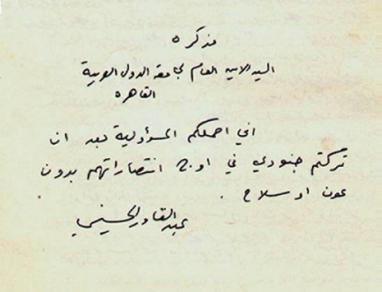 مذكرة
السيد الامين العام لجامعة الدول العربية
القاهرة
اني احملكم المسؤولية بعد ان
تركتم جنودي في اوج انتصاراتهم بدون
عون او سلاح .
عبد القادر الحسيني